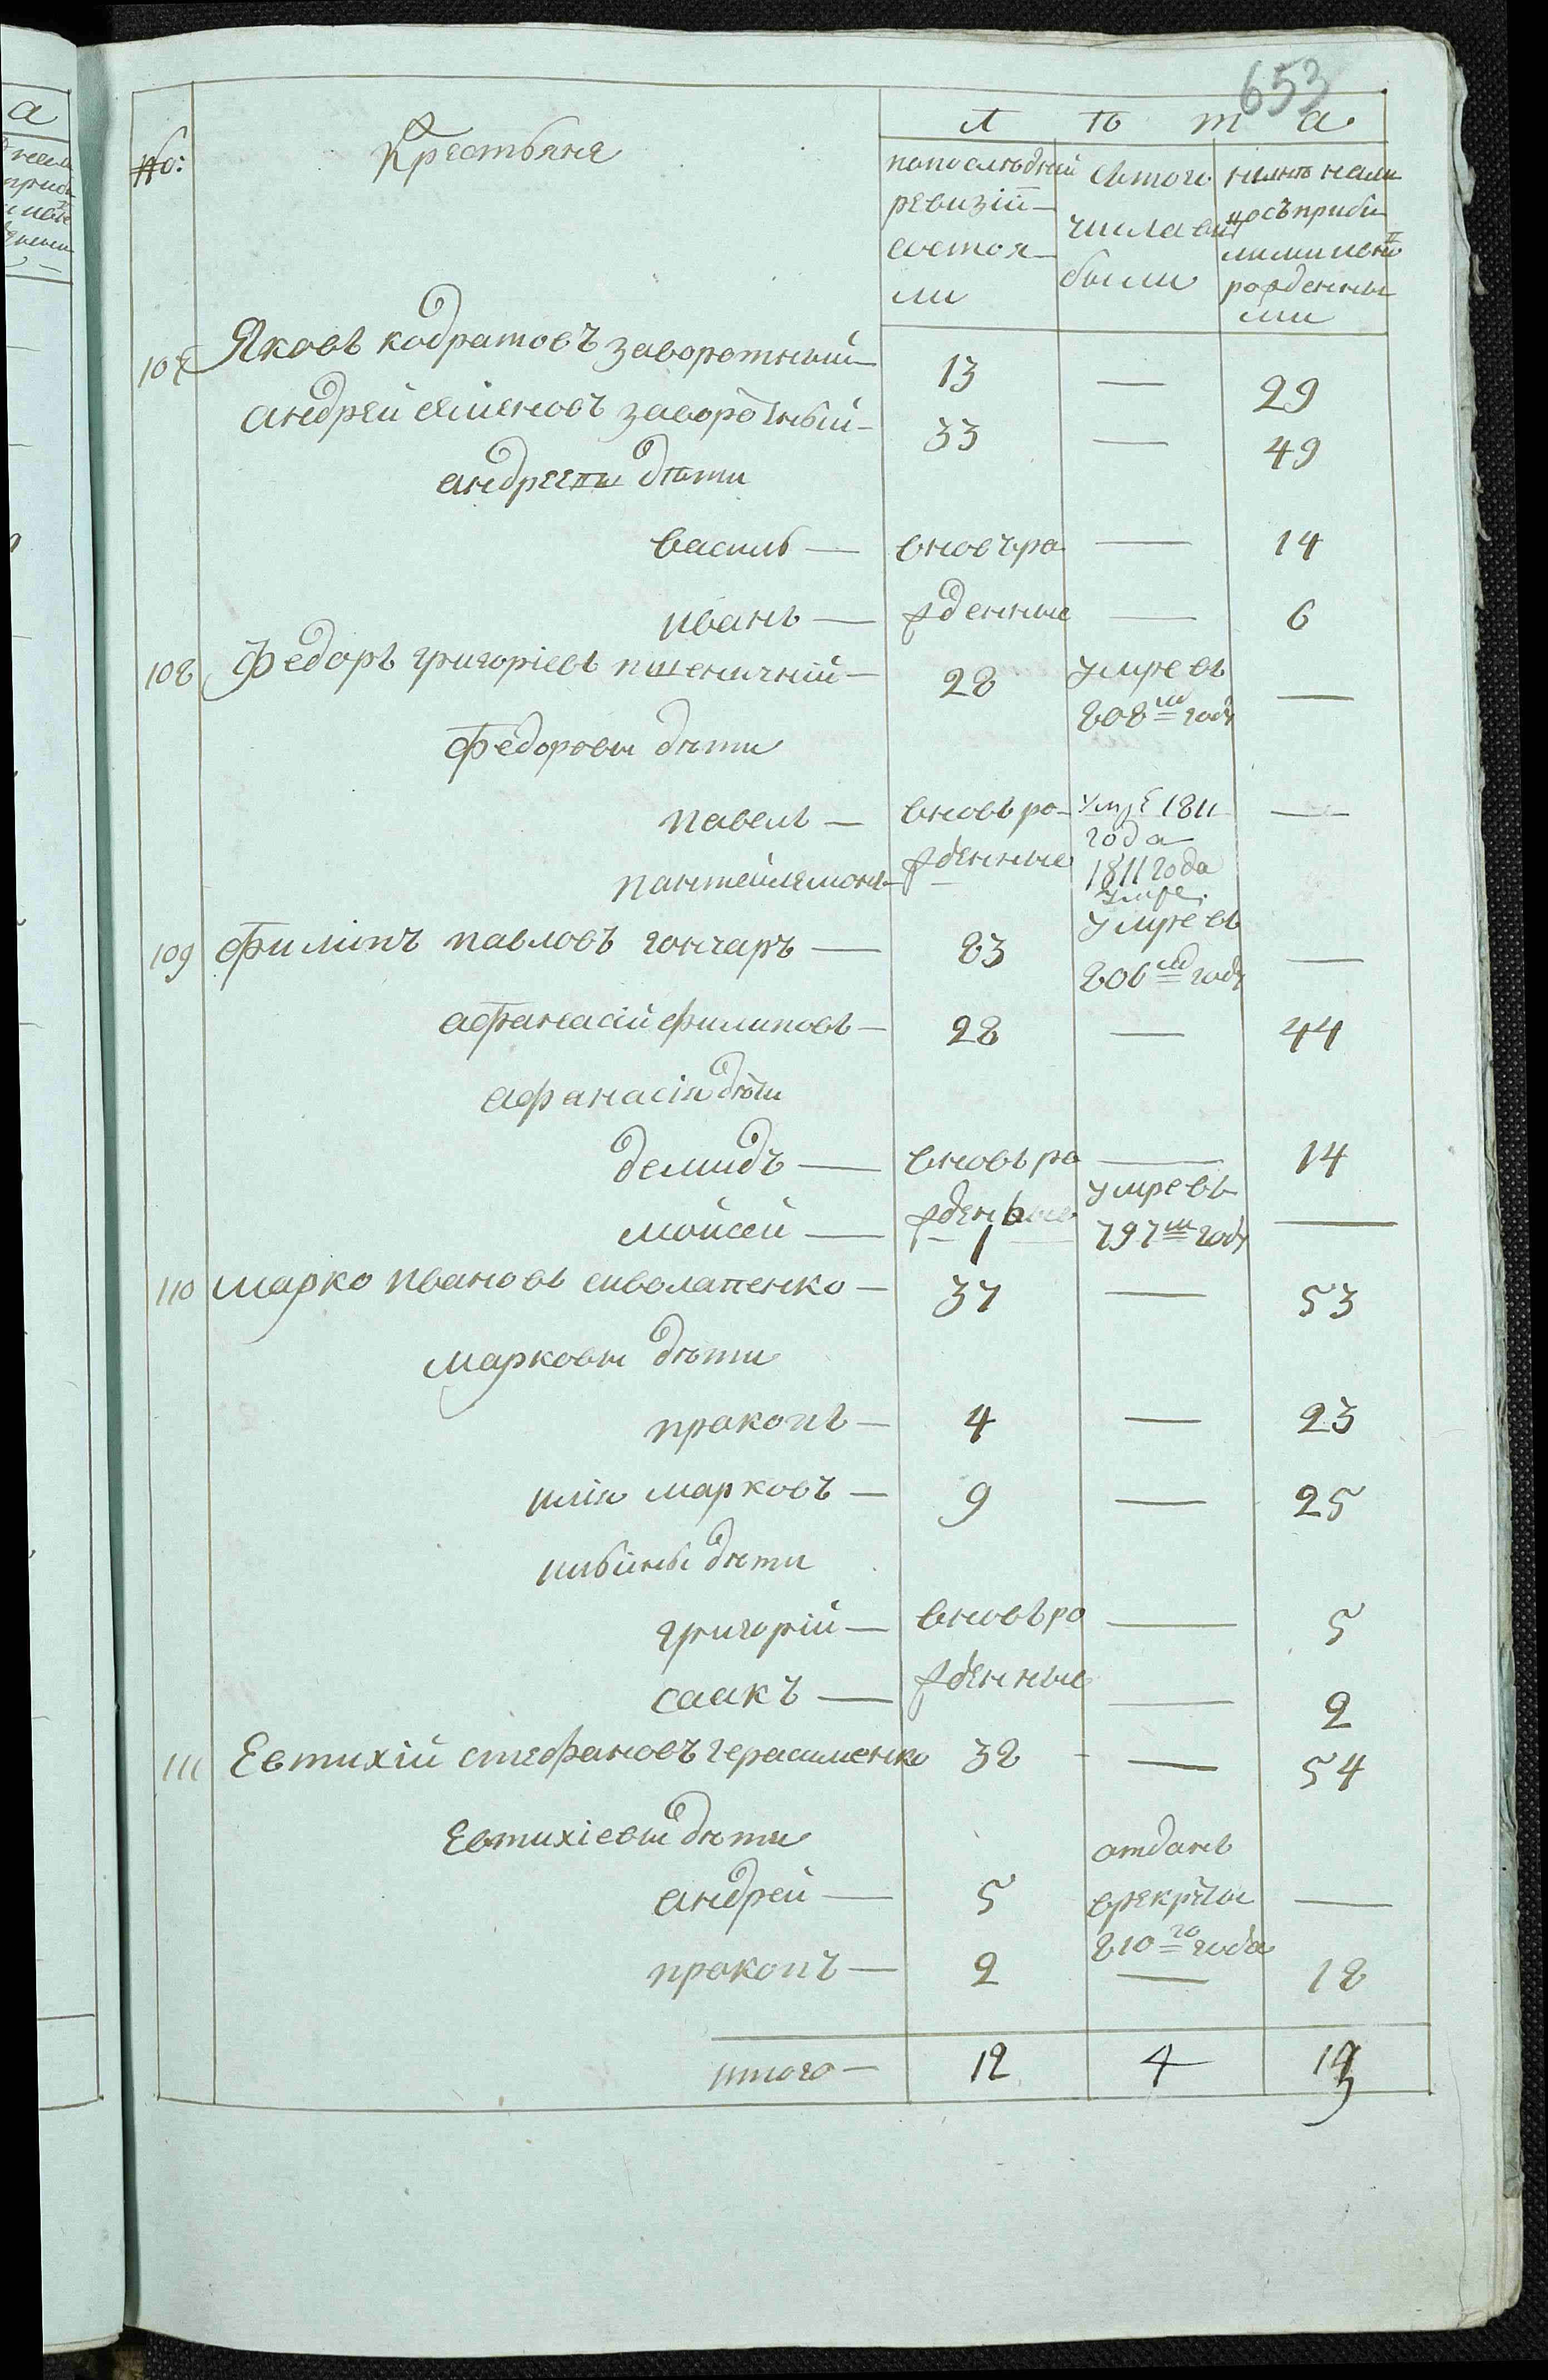 653
№: Крестьяне Л ѣ т а
попослѣдней ревизіи состояли
Ізтого числа выбыли
нынѣ налицо съ прибылыми и новорожденными
107 Яковъ кодратовъ заворотный — 13 — 29
андрей семеновъ заворотный — 33 — 49
андреевы дѣти
василь — вновь ро — 14
иванъ — жденные — 6
108 Федоръ григоріевъ пшеничній — 28 умре въ 808м году —
Федоровы дѣти
павелъ — вновь ро умре 1811 года —
пантейлемонъ — жденные 1811 года умре.
109 Филипъ павловъ гончаръ — 83 умре въ 806м году —
афанасій филиповъ — 28 — 44
афанасія дѣти
демидъ — вновь ро — 14
мойсей — жденные умре въ 797м году —
110 марко Ивановъ сиволапенко — 37 — 53
марковы дѣти
пракопъ — 4 — 23
илія марковъ — 9 — 25
ильины дѣти
григорій — вновь ро — 5
саакъ — жденные — 2
111 Евтихій стефановъ герасименко 38 — 54
Евтихіевы дѣти
андрей — 5 отданъ врекруты 810го года —
прокопъ — 2 — 18
итого — 12 4 13
а